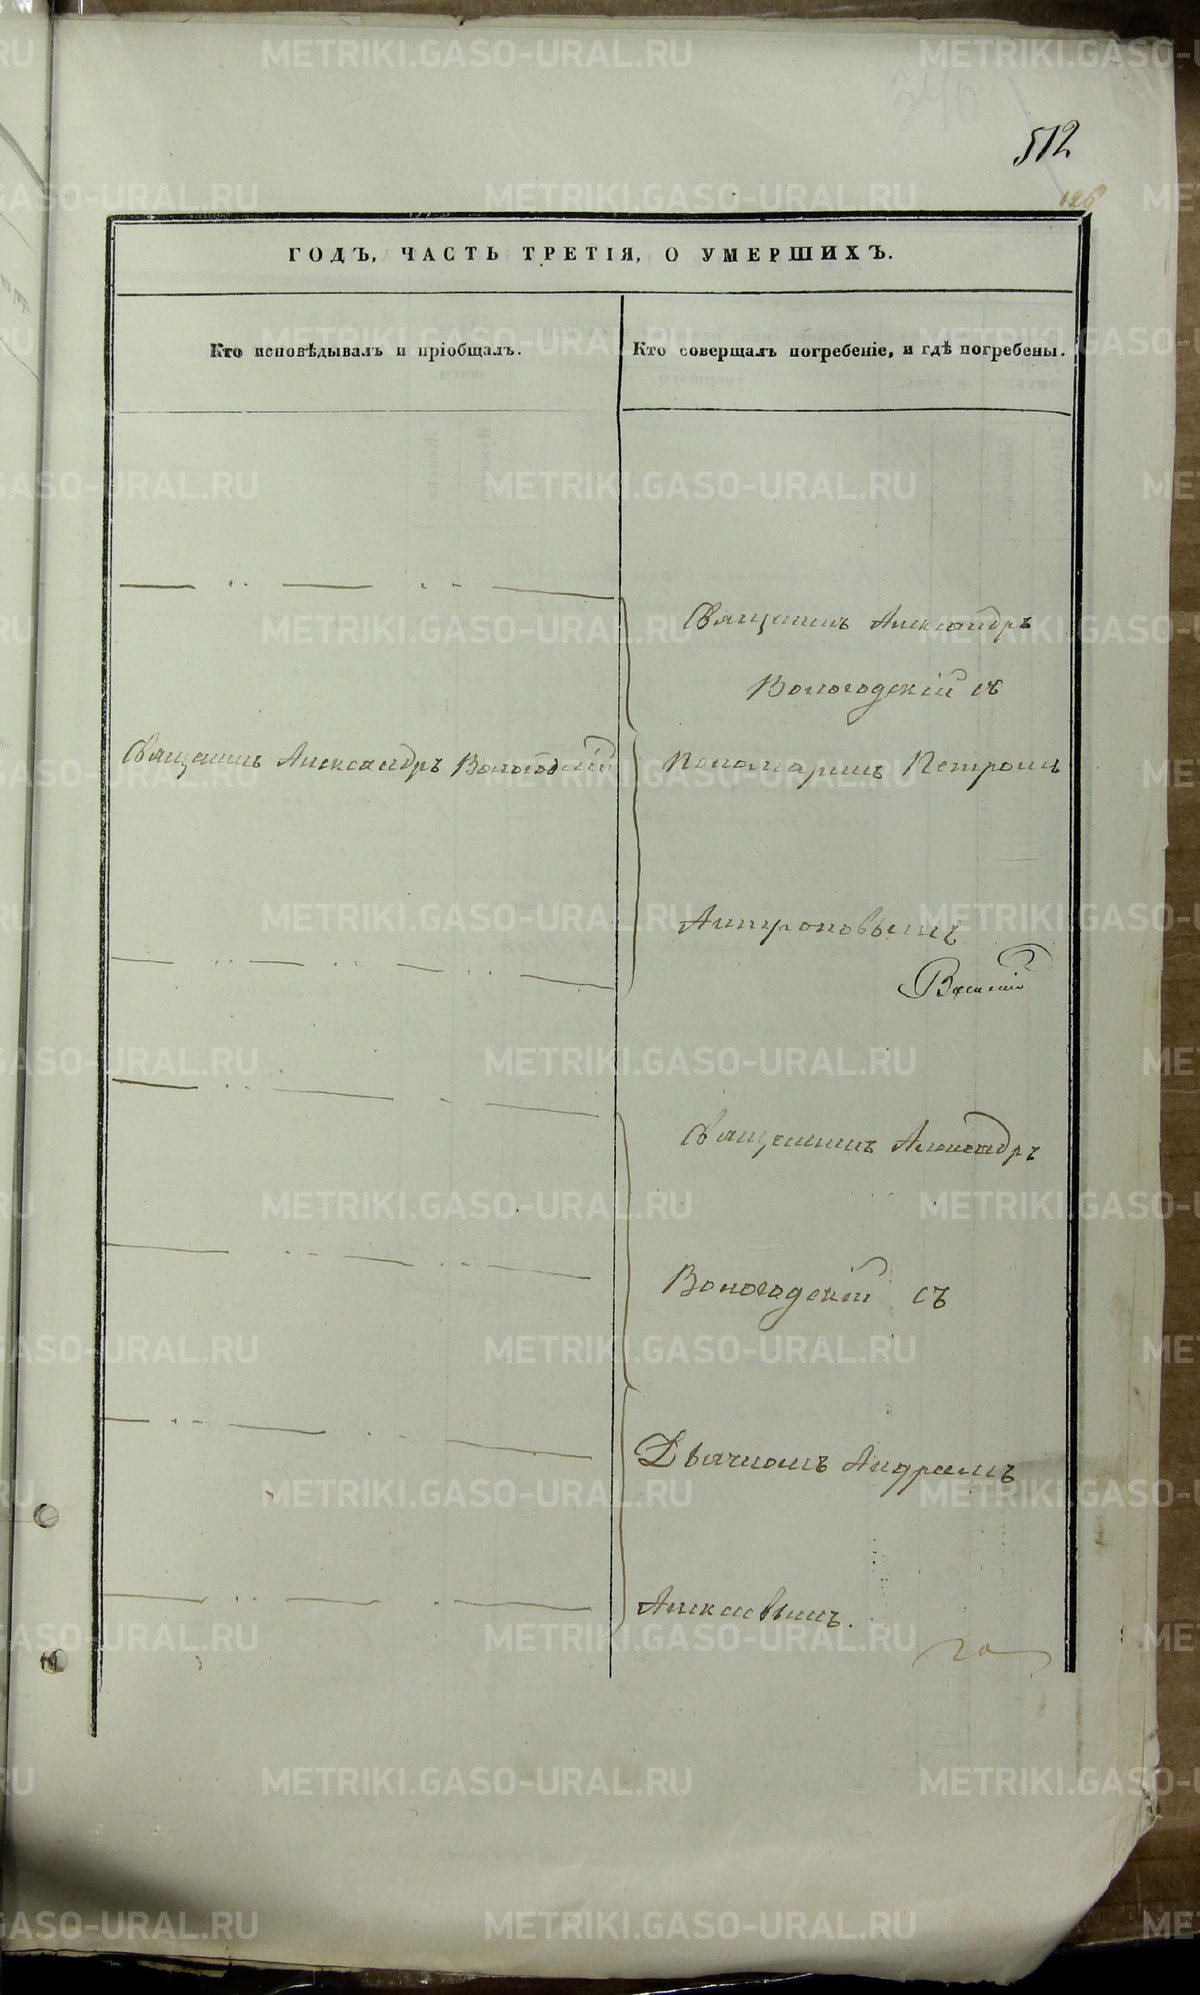 512
126
ГОДЪ, ЧАСТЬ ТРЕТІЯ, О УМЕРШИХЪ.
Кто исповѣдывалъ и пріобщалъ.
Кто совершалъ погребеніе, и гдѣ погребены.
Священникъ Александръ
Вологодскій съ
Священникъ Александръ Вологодскій
Пономаремъ Петромъ
Священникъ Александръ
Вологодскій съ
Дьячкомъ Андреемъ
METRIKI.GASO-URAL.RU